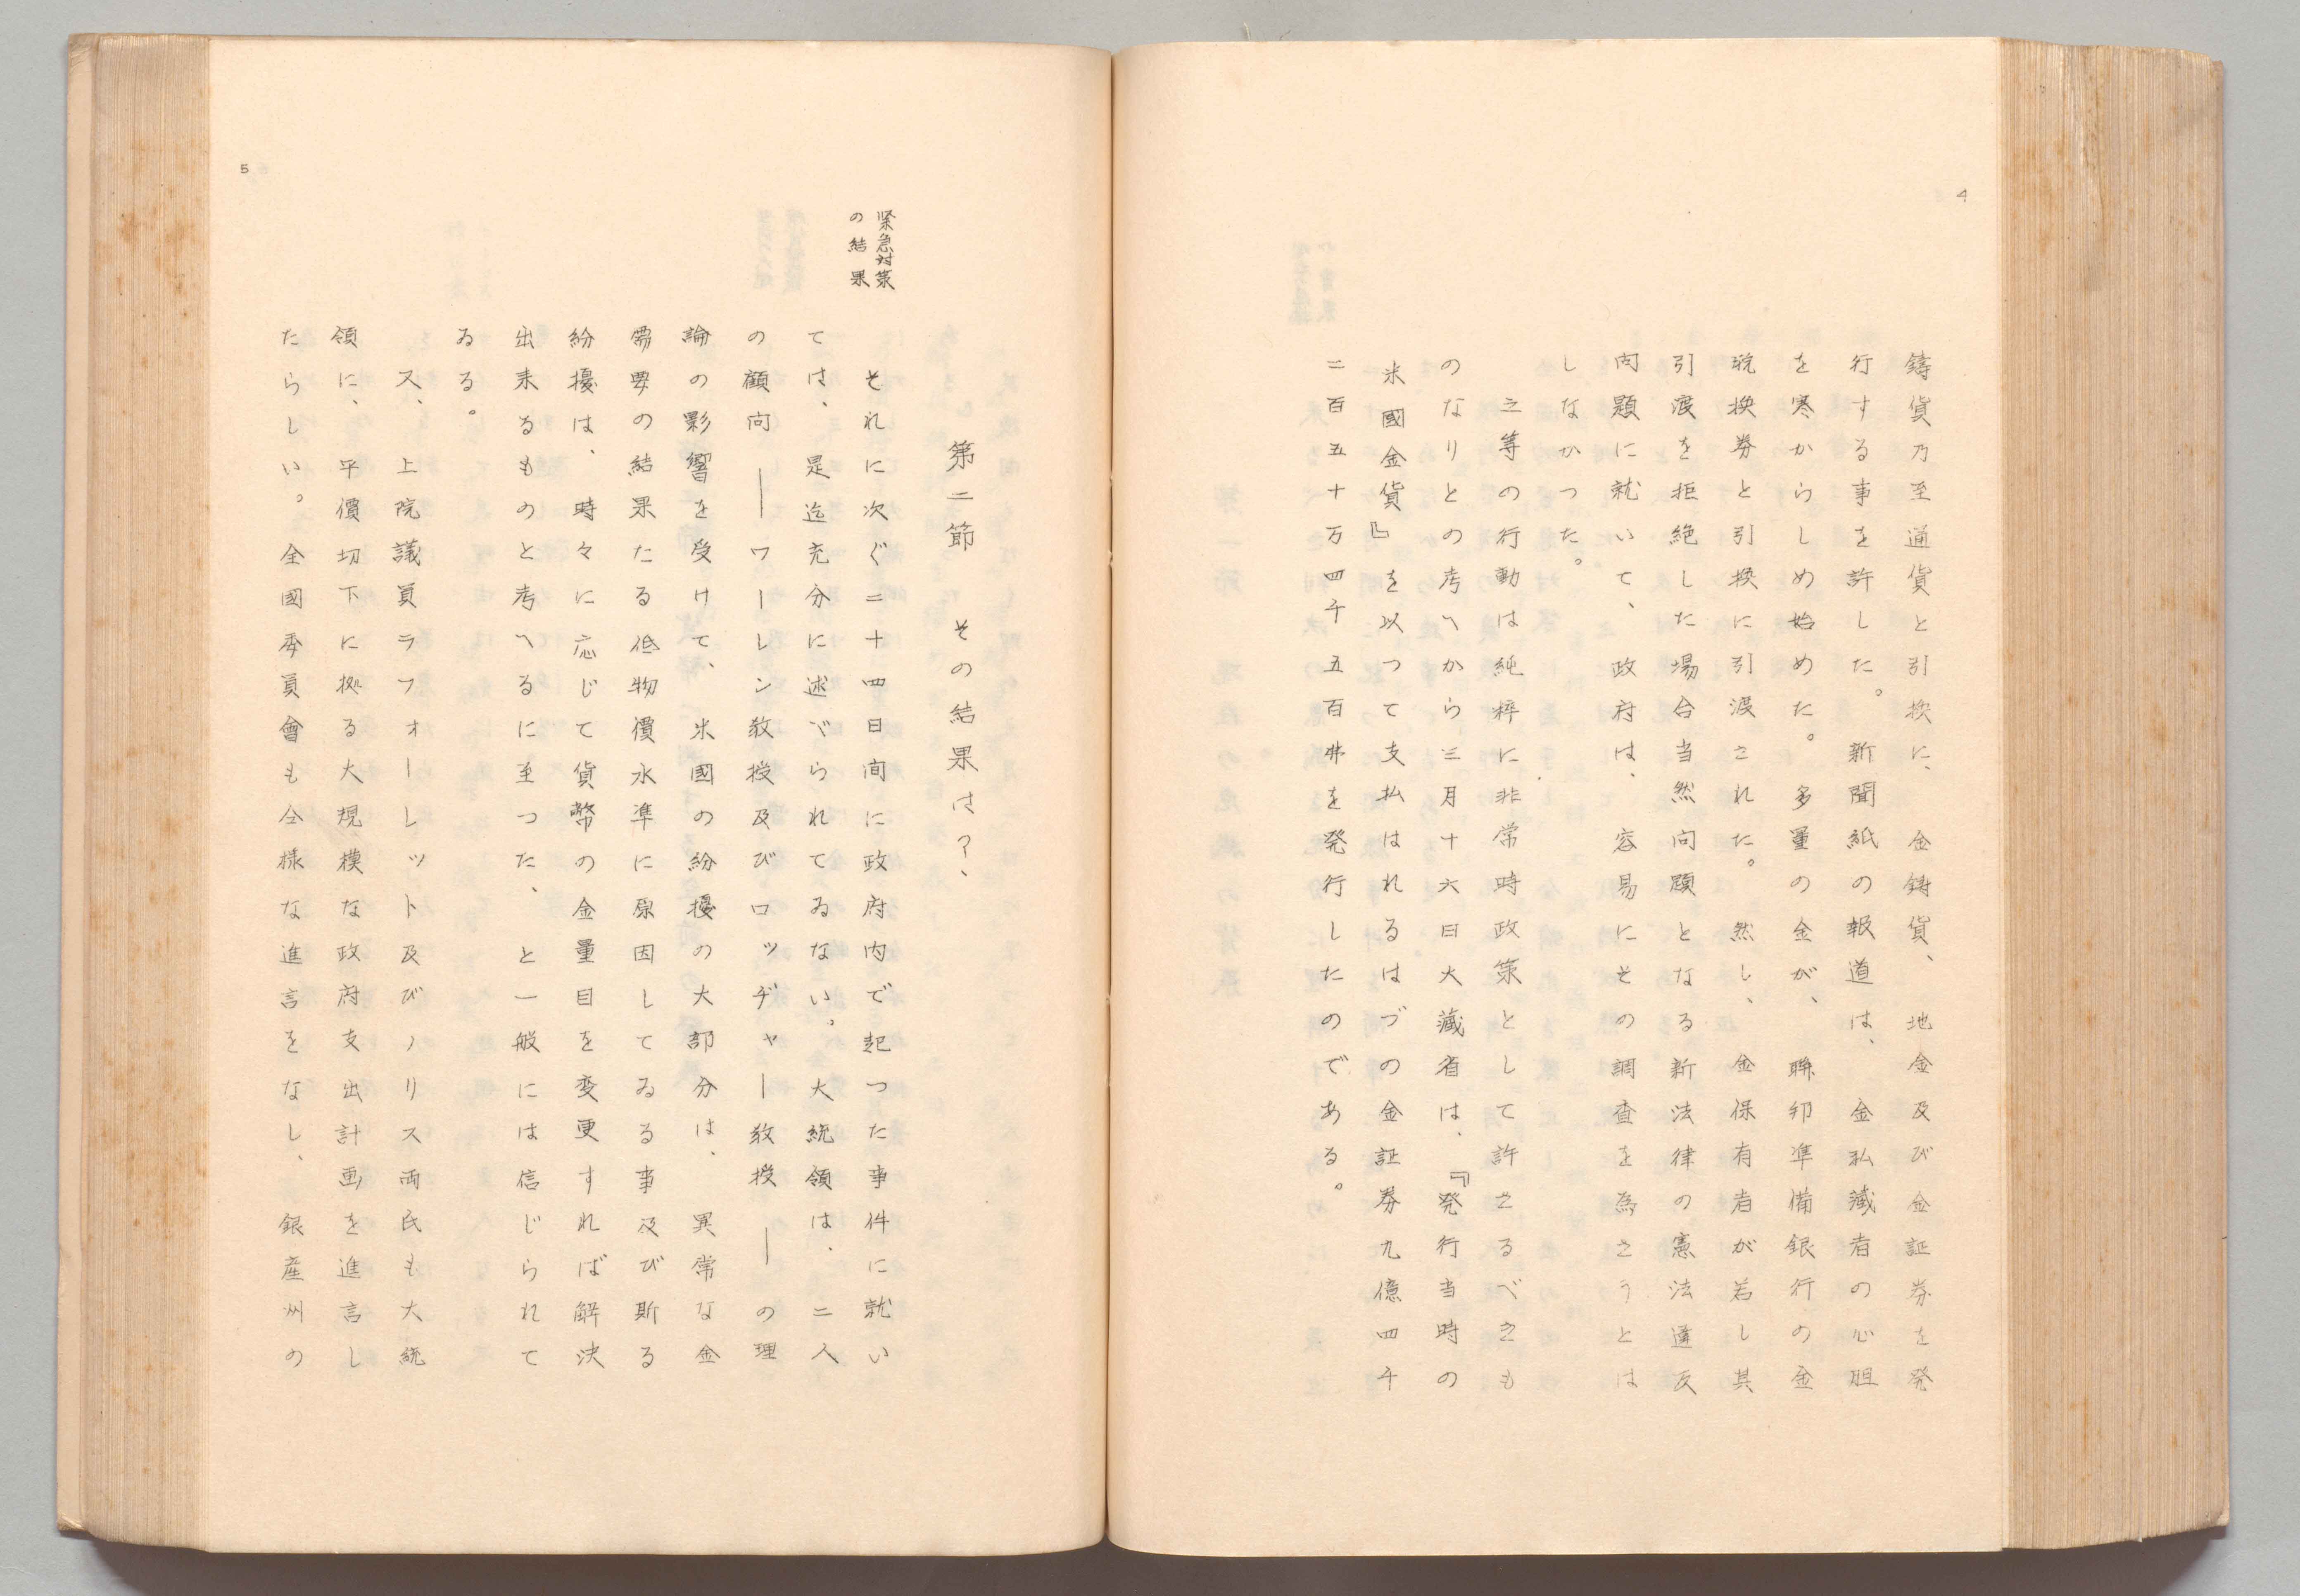 4
鋳貨乃至通貨と引換に、金鋳貨、地金及び金証券を発
行する事を許した。新聞紙の報道は、金私蔵者の心胆
を寒からしめ始めた。多量の金が、聯邦準備銀行の金
兌換券と引換に引渡された。然し、金保有者が若し其
引渡を拒絶した場合当然問題となる新法律の憲法違反
問題に就いて、政府は、容易にその調査を為さうとは
しなかつた。
之等の行動は純粋に非常時政策として許さるべきも
のなりとの考へから三月十六日大蔵省は、『発行当時の
米國金貨』を以つて支払はれるはづの金証券九億四千
二百五十万四千五百弗を発行したのである。
5
緊急対策
の結果
第二節　その結果は？、
それに次ぐ二十四日間に政府内で起つた事件に就い
ては、是迄充分に述べられてゐない。大統領は、二人
の顧問――ワーレン教授及びロッヂャー教授――の理
論の影響を受けて、米國の紛擾の大部分は、異常な金
需要の結果たる低物價水準に原因してゐる事及び斯る
紛擾は、時々に応じて貨幣の金量目を変更すれば解決
出来るものと考へるに至つた、と一般には信じられて
ゐる。
又、上院議員ラフォーレット及びノリス両氏も大統
領に、平價切下に拠る大規模な政府支出計画を進言し
たらしい。全國委員會も仝様な進言をなし、銀産州の